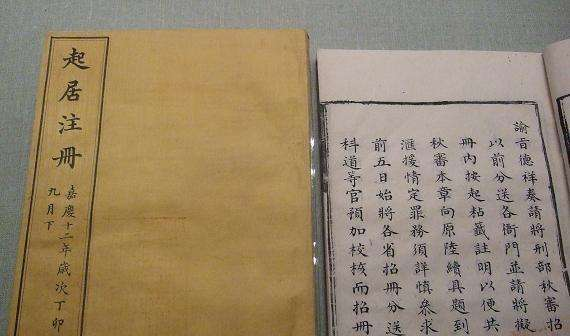 起居注冊
嘉慶十二年歲次丁卯
九月下
諭旨德祥奏請將刑部秋審招
以前分送各衙門並請將擬
冊內按起粘籤註明以便共
秋審本章向原陸續具題到
滙援情定罪務須詳慎參求
前五日始將各省招冊分送
科道等官預加校核而招冊